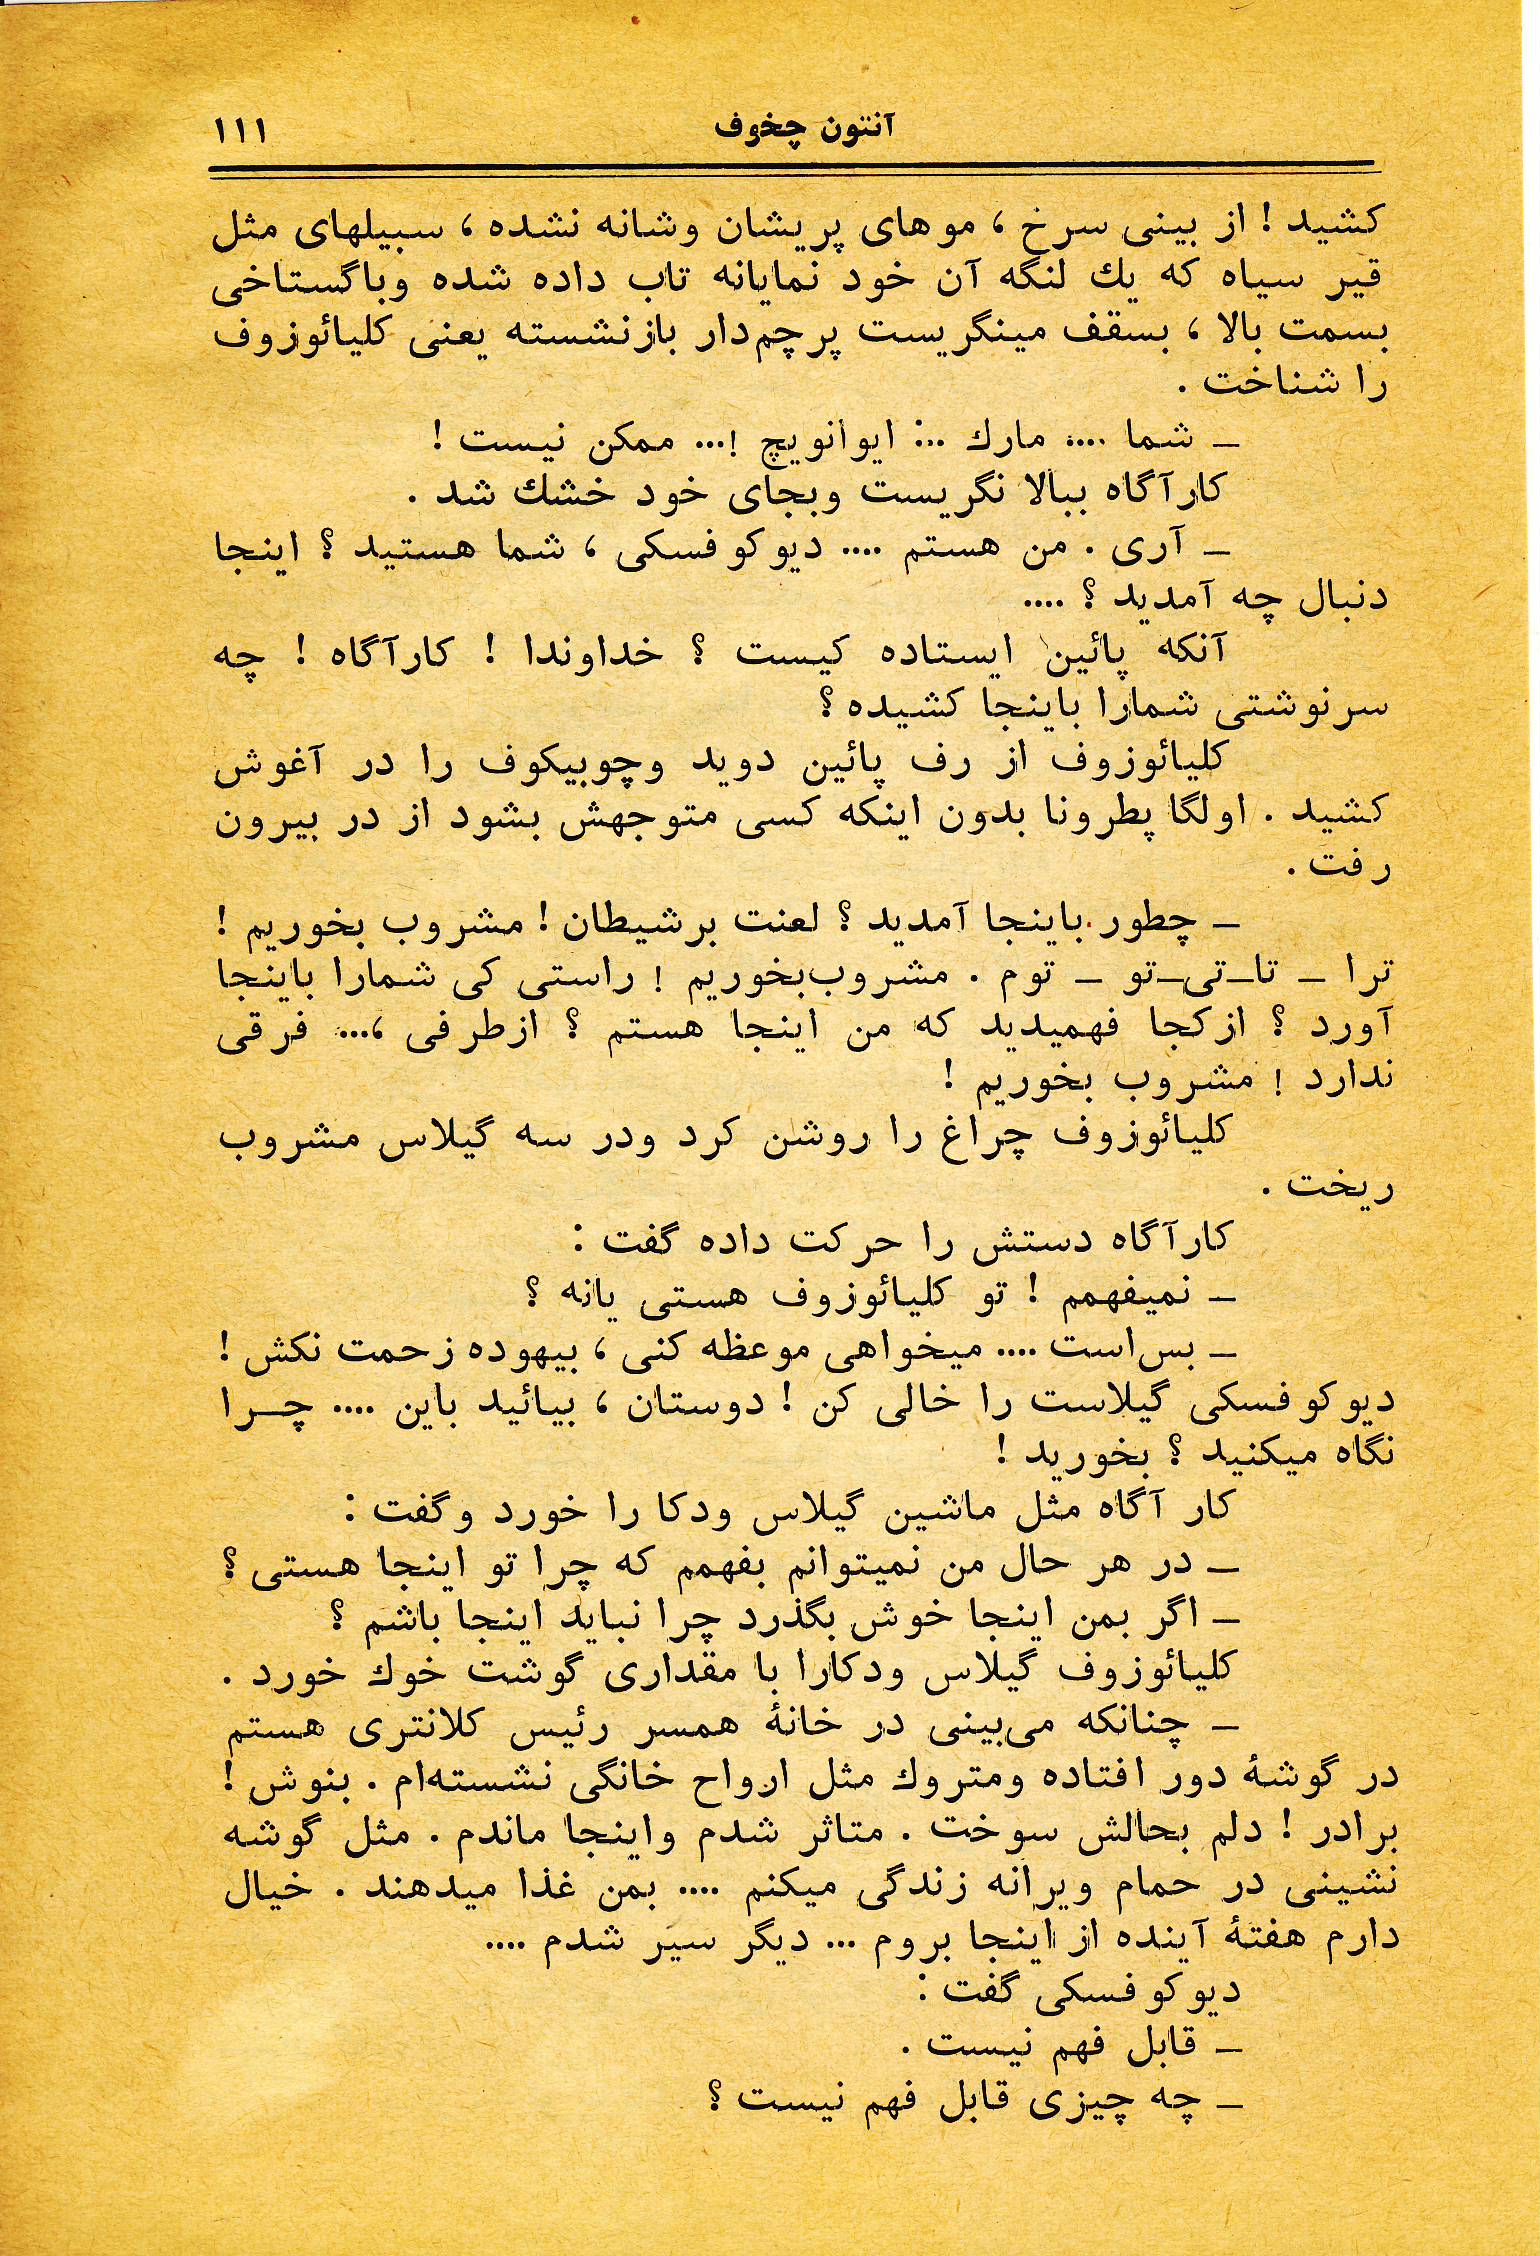 آنتون چخوف ۱۱۱
کشید ! از بینی سرخ ، موهای پریشان وشانه نشده ، سبیلهای مثل
قیر سیاه که یك لنگه آن خود نمایانه تاب داده شده وباگستاخی
بسمت بالا ، بسقف مینگریست پرچم‌دار بازنشسته یعنی کلیائوزوف
را شناخت .
ـ شما .... مارك ... ایوانویچ !... ممکن نیست !
کارآگاه ببالا نگریست وبجای خود خشك شد .
ـ آری . من هستم .... دیوکوفسکی ، شما هستید ؟ اینجا
دنبال چه آمدید ؟ ....
آنکه پائین ایستاده کیست ؟ خداوندا ! کارآگاه ! چه
سرنوشتی شمارا باینجا کشیده ؟
کلیائوزوف از رف پائین دوید وچوبیکوف را در آغوش
کشید . اولگا پطرونا بدون اینکه کسی متوجهش بشود از در بیرون
رفت .
ـ چطور باینجا آمدید ؟ لعنت برشیطان ! مشروب بخوریم !
ترا ـ تا‌ـ‌تی‌ـ‌تو ـ توم . مشروب‌بخوریم ! راستی کی شمارا باینجا
آورد ؟ ازکجا فهمیدید که من اینجا هستم ؟ ازطرفی ،... فرقی
ندارد ! مشروب بخوریم !
کلیائوزوف چراغ را روشن کرد ودر سه گیلاس مشروب
ریخت .
کارآگاه دستش را حرکت داده گفت :
ـ نمیفهمم ! تو کلیائوزوف هستی یانه ؟
ـ بس‌است .... میخواهی موعظه کنی ، بیهوده زحمت نکش !
دیوکوفسکی گیلاست را خالی کن ! دوستان ، بیائید باین .... چـرا
نگاه میکنید ؟ بخورید !
کار آگاه مثل ماشین گیلاس ودکا را خورد وگفت :
ـ در هر حال من نمیتوانم بفهمم که چرا تو اینجا هستی ؟
ـ اگر بمن اینجا خوش بگذرد چرا نباید اینجا باشم ؟
کلیائوزوف گیلاس ودکارا با مقداری گوشت خوك خورد .
ـ چنانکه می‌بینی در خانهٔ همسر رئیس کلانتری هستم
در گوشهٔ دور افتاده ومتروك مثل ارواح خانگی نشسته‌ام . بنوش !
برادر ! دلم بحالش سوخت . متاثر شدم واینجا ماندم . مثل گوشه
نشینی در حمام ویرانه زندگی میکنم .... بمن غذا میدهند . خیال
دارم هفتهٔ آینده از اینجا بروم ... دیگر سیر شدم ....
دیوکوفسکی گفت :
ـ قابل فهم نیست .
ـ چه چیزی قابل فهم نیست ؟